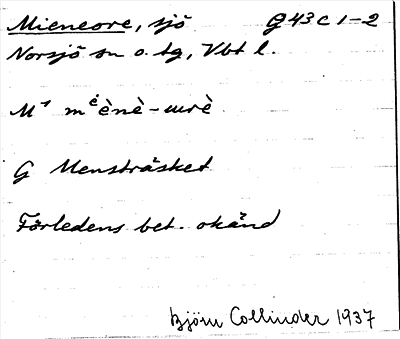 Mieneore, sjö G 43 c 1-2
Norsjö sn o. tg, Vbt l.
G Mensträsket
Förledens bet. okänd
Björn Collinder 1937